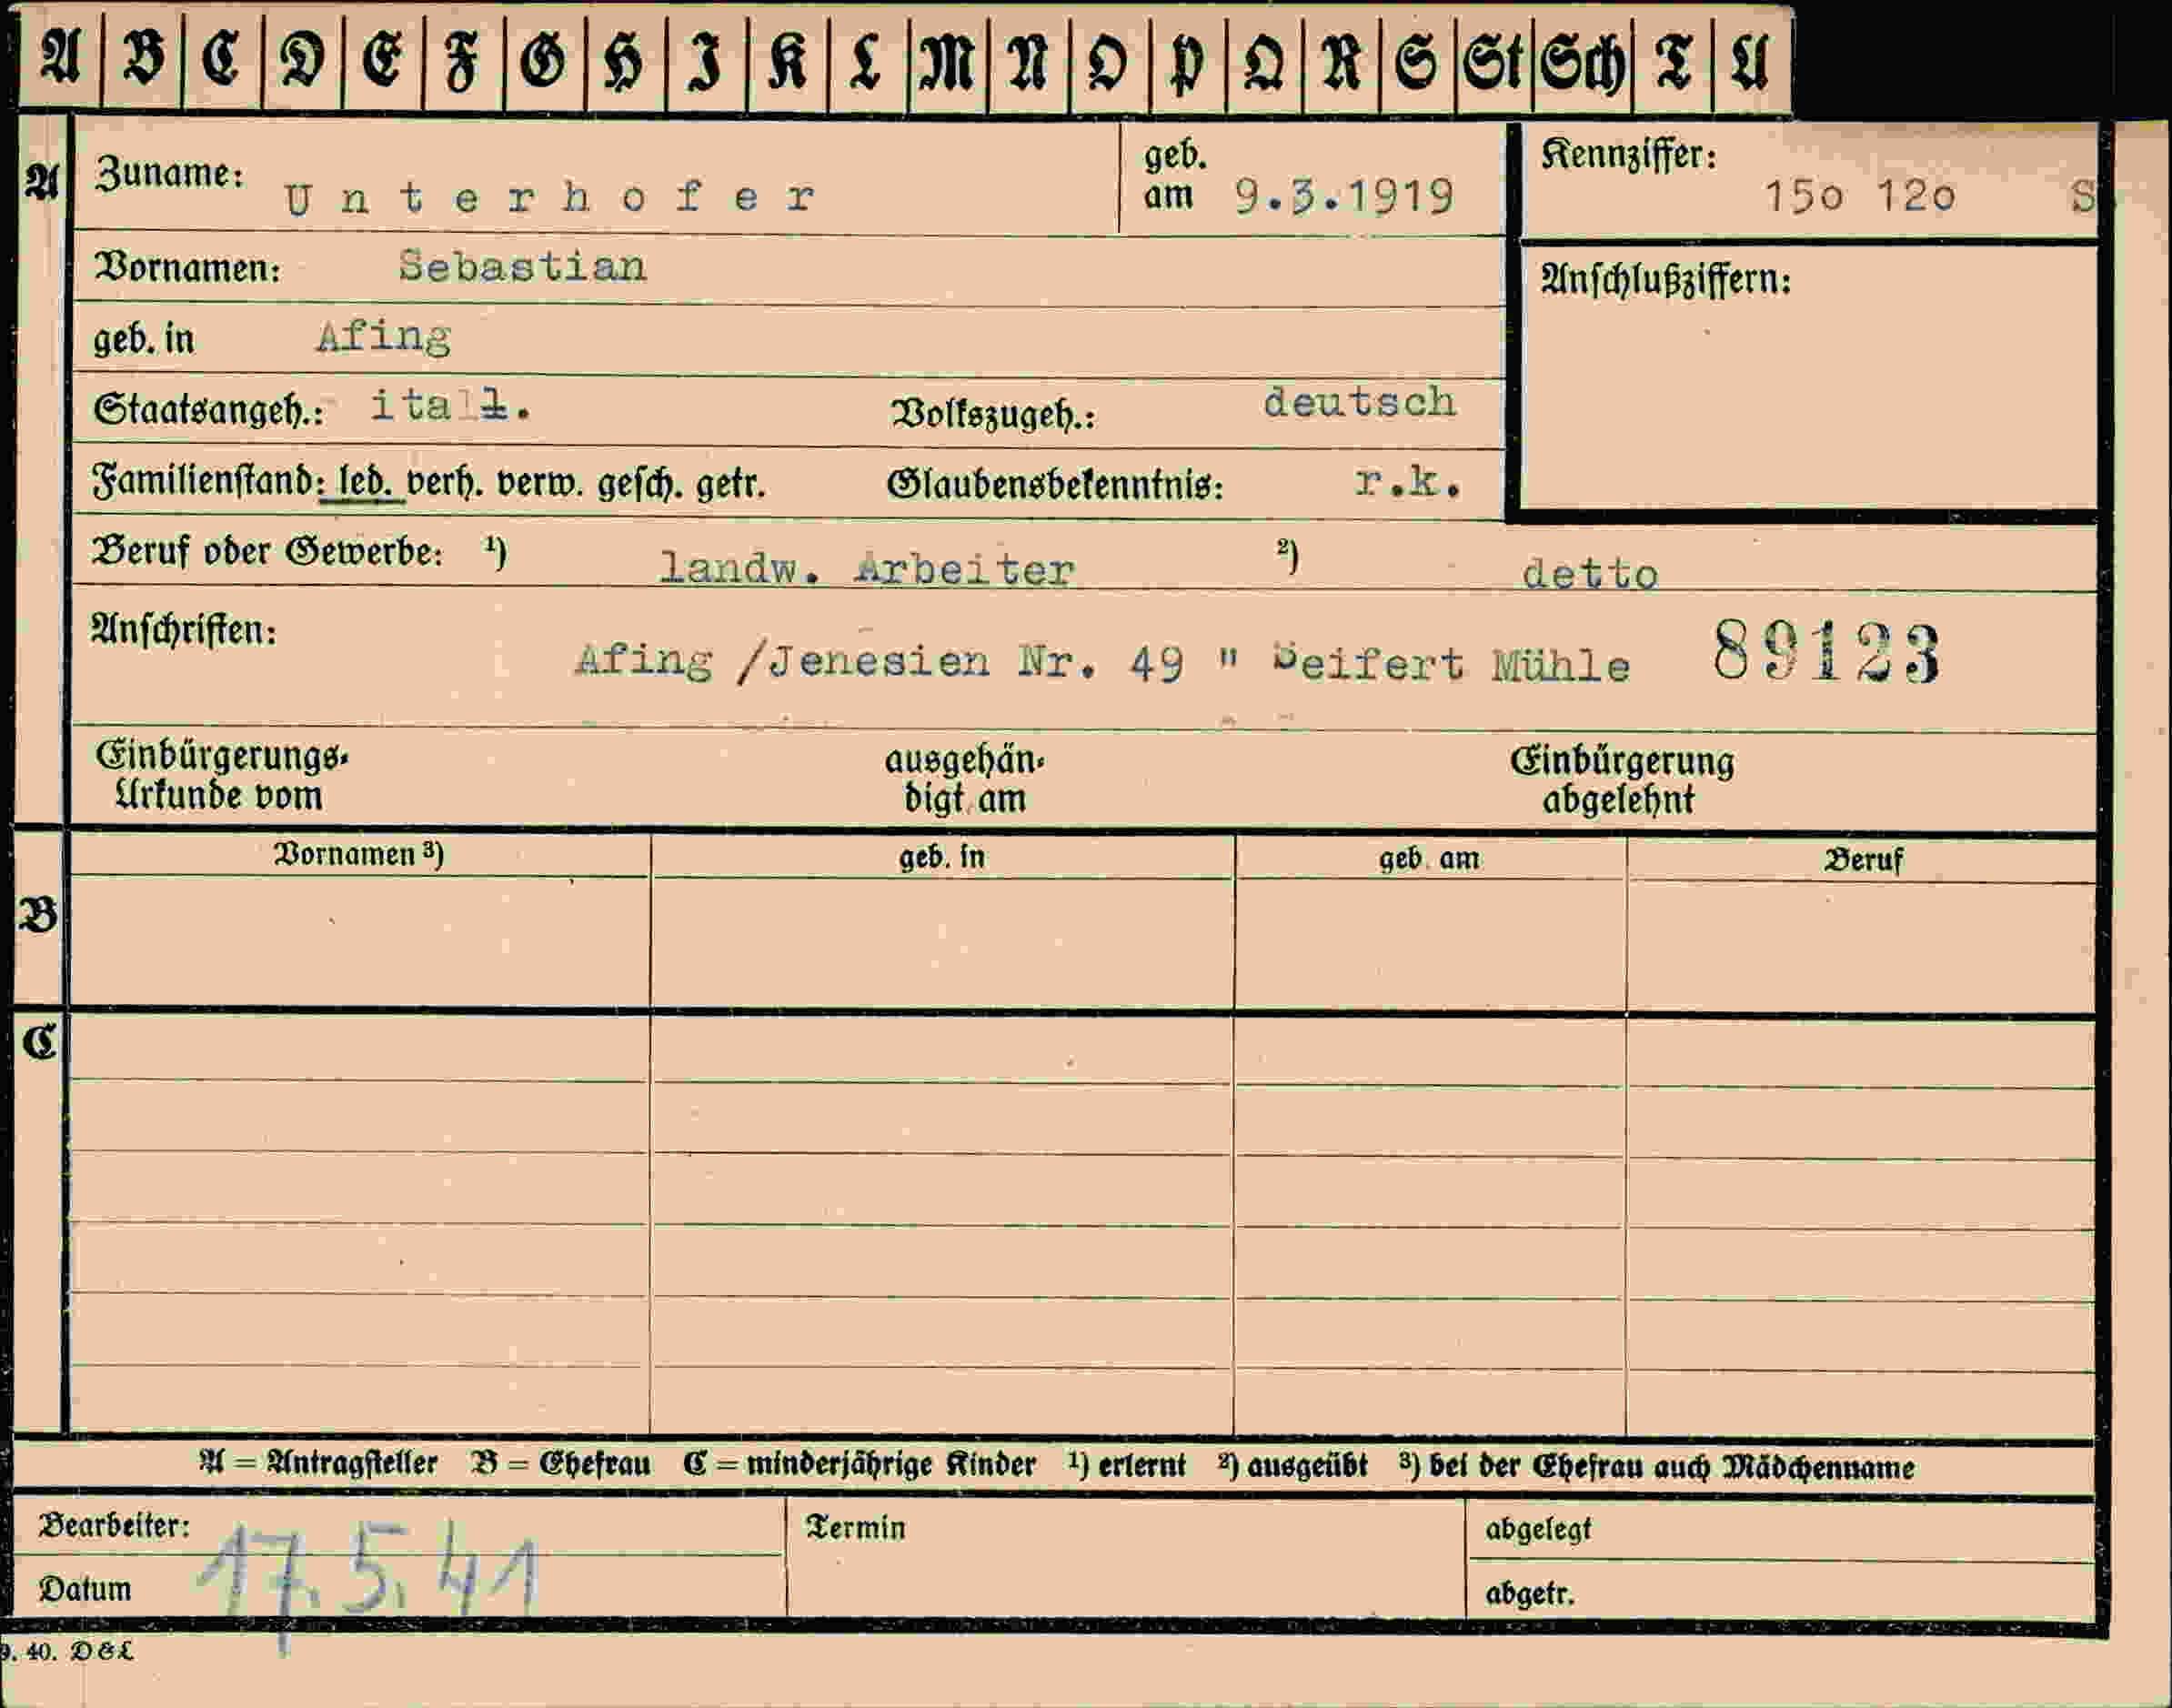 A B C D E F G H I K L M N O P Q R S St Sch T U
A Zuname: Unterhofer geb. am 9.3.1919 Kennziffer: 15o 12o S
Vornamen: Sebastian Anschlußziffern:
geb. in Afing
Staatsangeh.: ital. Volkszugeh.: deutsch
Familienstand: led. verh. verw. gesch. getr. Glaubensbekenntnis: r.k.
Beruf oder Gewerbe: ¹) landw. Arbeiter ²) detto
Anschriften: Afing /Jenesien Nr. 49 " Seifert Mühle 89123
Einbürgerungs- ausgehän- Einbürgerung
Urkunde vom digt am abgelehnt
Vornamen ³) geb. in geb. am Beruf
B
C
A = Antragsteller B = Ehefrau C = minderjährige Kinder ¹) erlernt ²) ausgeübt ³) bei der Ehefrau auch Mädchenname
Bearbeiter: Termin abgelegt
Datum 17.5.41 abgetr.
9. 40. D&L